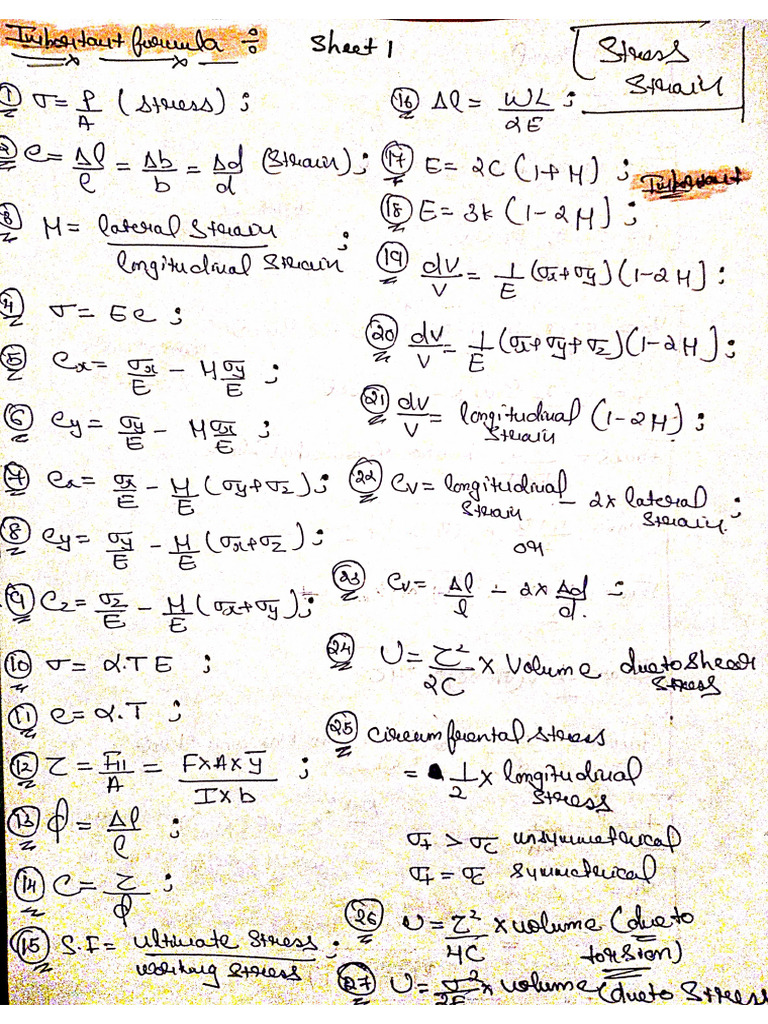 Important formula ÷ Sheet 1
Stress
Strain
① σ = P/A (Stress) ;
② e = Δl/l = Δb/b = Δd/d (Strain) ;
③ M = lateral Strain / longitudinal Strain ;
④ σ = Ee ;
⑤ ex = σx/E - Mσy/E ;
⑥ ey = σy/E - Mσx/E ;
⑦ ex = σx/E - M/E (σy+σz) ;
⑧ ey = σy/E - M/E (σx+σz) ;
⑨ ez = σz/E - M/E (σx+σy) ;
⑩ σ = α.T E ;
⑪ e = α.T ;
⑫ τ = F11/A = F×A×ȳ / I×b ;
⑬ ϕ = Δl/l ;
⑭ C = τ/ϕ ;
⑮ S.F = ultimate Stress / working Stress ;
⑯ Δl = WL/2E ;
⑰ E = 2C (1+M) ;
Important
⑱ E = 3k (1-2M) ;
⑲ dV/V = 1/E (σx+σy) (1-2M) ;
⑳ dV/V = 1/E (σx+σy+σz) (1-2M) ;
㉑ dV/V = longitudinal Strain (1-2M) ;
㉒ ev = longitudinal Strain - 2× lateral Strain ;
or
㉓ ev = Δl/l - 2× Δd/d. ;
㉔ U = τ²/2C × Volume due to Shear Stress
㉕ circumfrental stress
= 1/2 × longitudinal Stress
σt > σc unsymmeterical
σt = σc symmeterical
㉖ U = τ²/4C × volume (due to torsion)
㉗ U = σ²/2E × volume (due to Stress